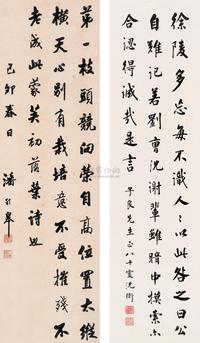 徐陵多忘每不識人人以此咎之曰公
自難記若劉曹沈謝輩雖暗中摸索亦
合認得誠哉是言
子良先生正 八十叟沈衛
第一枝頭競向榮自高位置太縱
橫天心別有栽培意不受摧殘不
老成此蒙 初落葉詩也
己卯春日
潘 皋